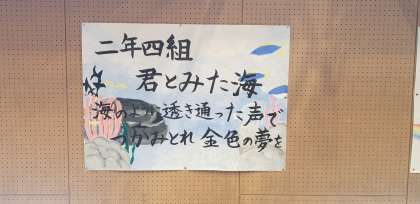 二年四組
君とみた海
海のよう透き通った声で
つかみとれ 金色の夢を